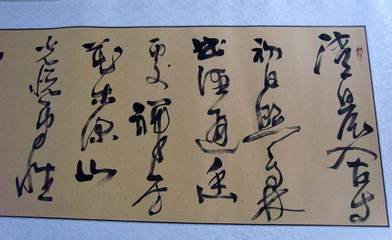 清晨入古寺
初日照高林
曲徑通幽
處禪房
花木深山
光悦鳥性